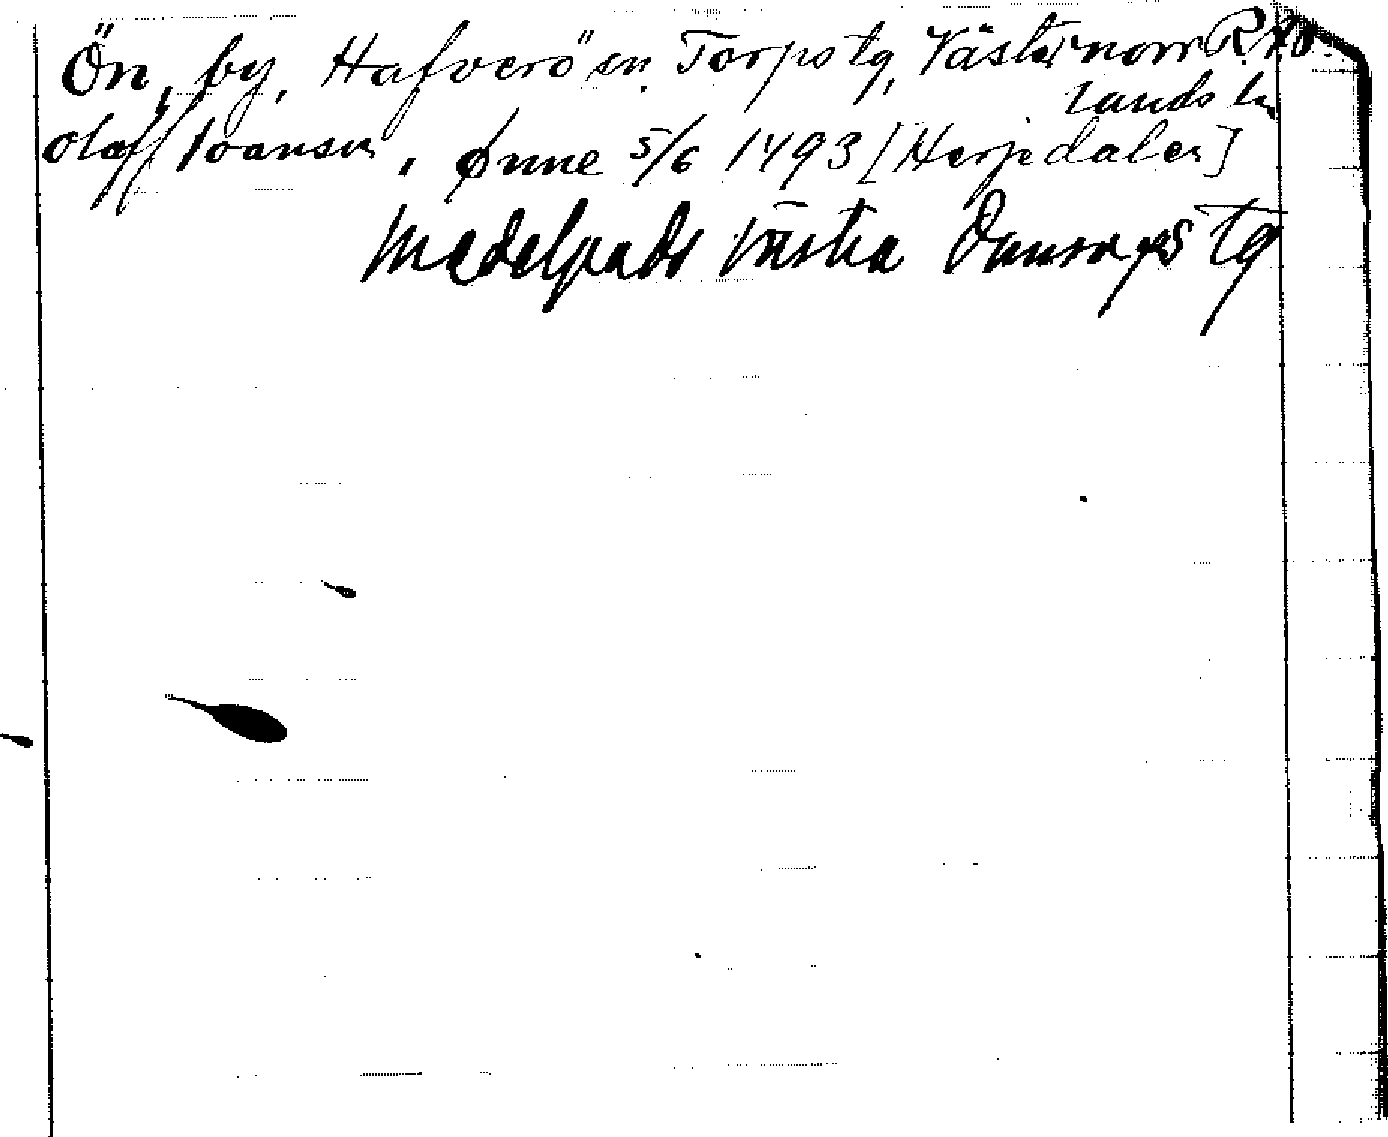 Ön, by, Hafverö sn. Torps tg, Västernorr
lands l.
Olaff Ioansen, Ønne 5/6 1493 [Herjedalen]
Medelpads Västra Domsagas tg